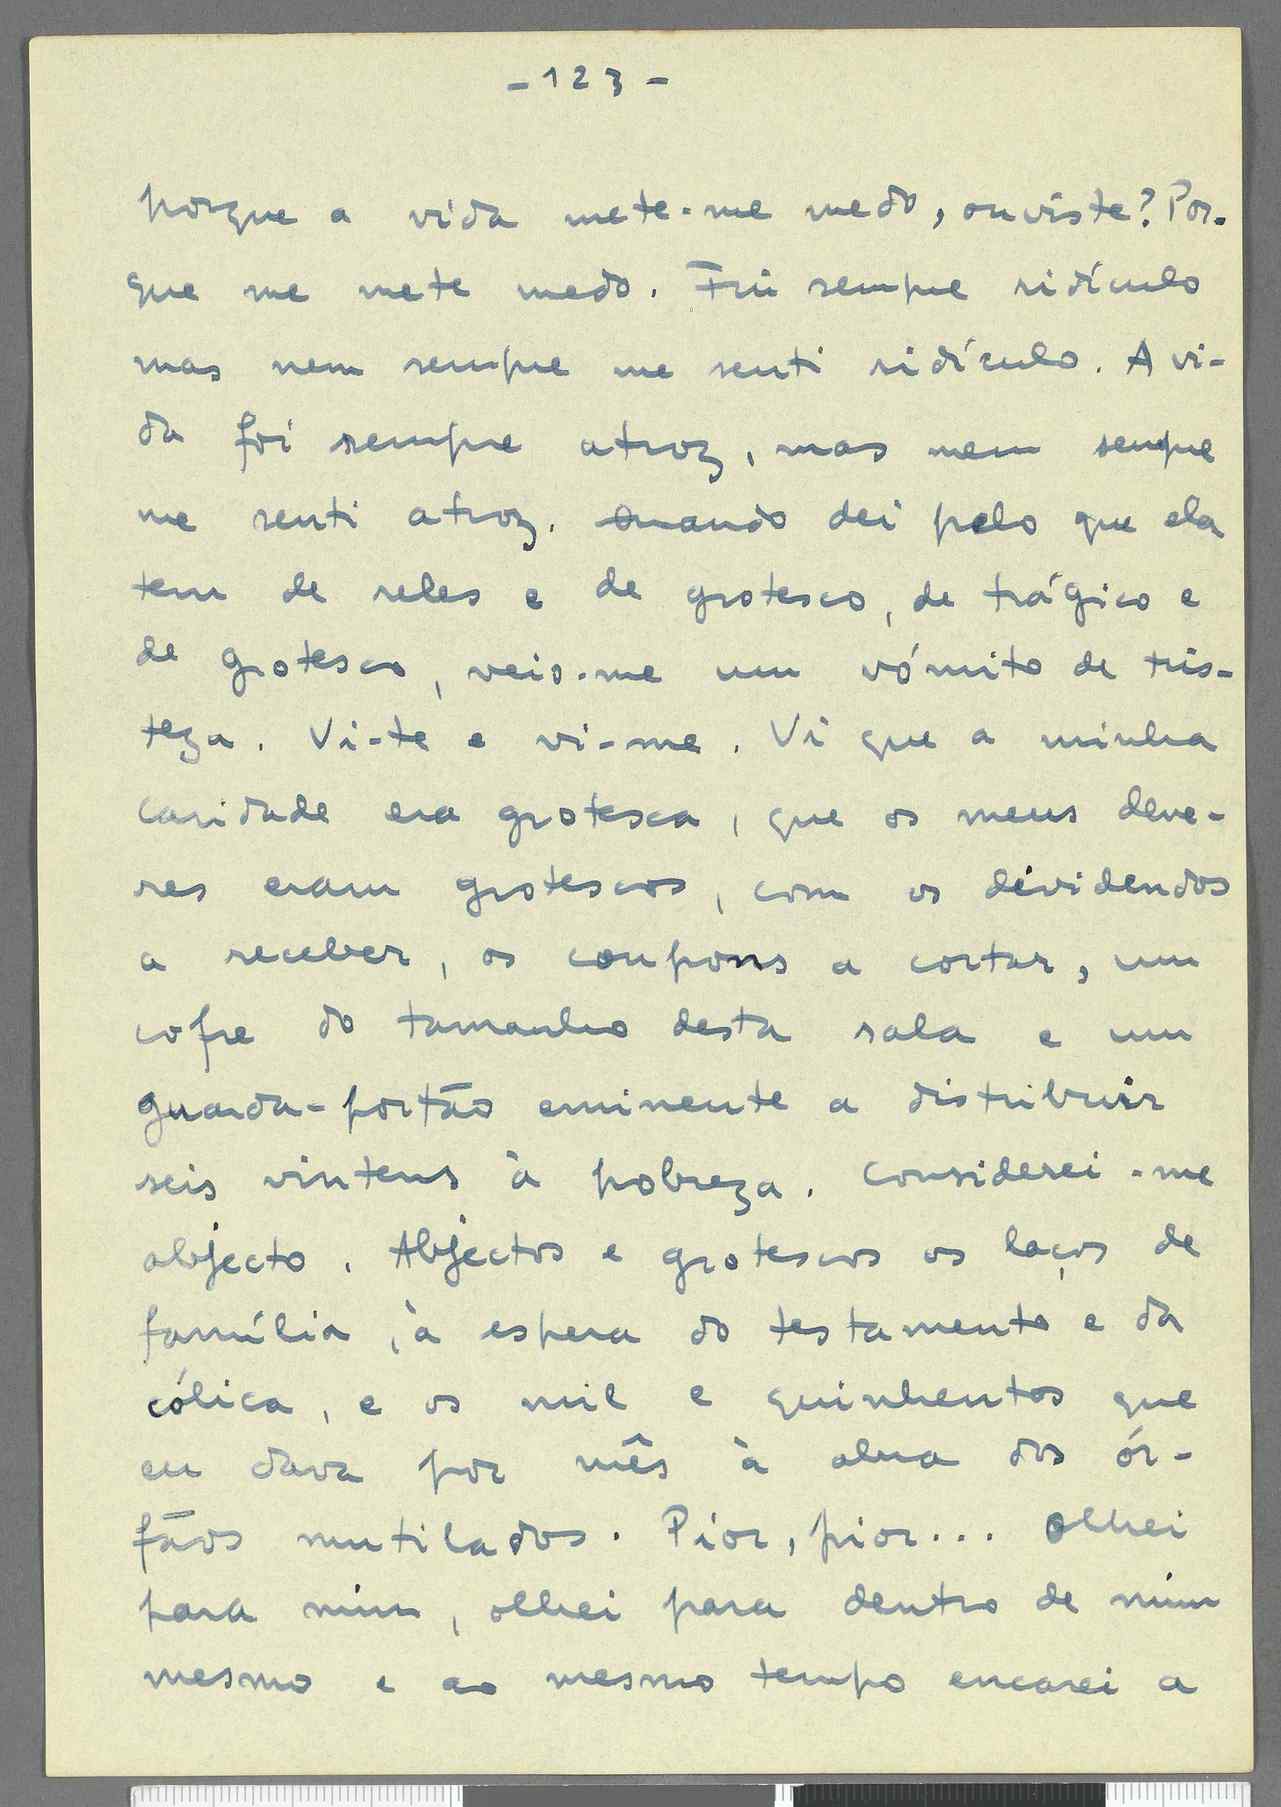 - 123 -
porque a vida mete-me medo, ouviste? Por-
que me mete medo. Fui sempre ridículo
mas nem sempre me senti ridículo. A vi-
da foi sempre atroz, mas nem sempre
me senti atroz. Quando dei pelo que ela
tem de reles e de grotesco, de trágico e
de grotesco, veio-me um vómito de tris-
teza. Vi-te e vi-me. Vi que a minha
caridade era grotesca, que os meus deve-
res eram grotescos, com os dividendos
a receber, os coupons a cortar, um
cofre do tamanho desta sala e um
guarda-portão eminente a distribuir
seis vintens à pobreza. Considerei-me
abjecto. Abjectos e grotescos os laços de
família, à espera do testamento e da
cólica, e os mil e quinhentos que
eu dava por mês à obra dos ór-
fãos mutilados. Pior, pior... Olhei
para mim, olhei para dentro de mim
mesmo e ao mesmo tempo encarei a